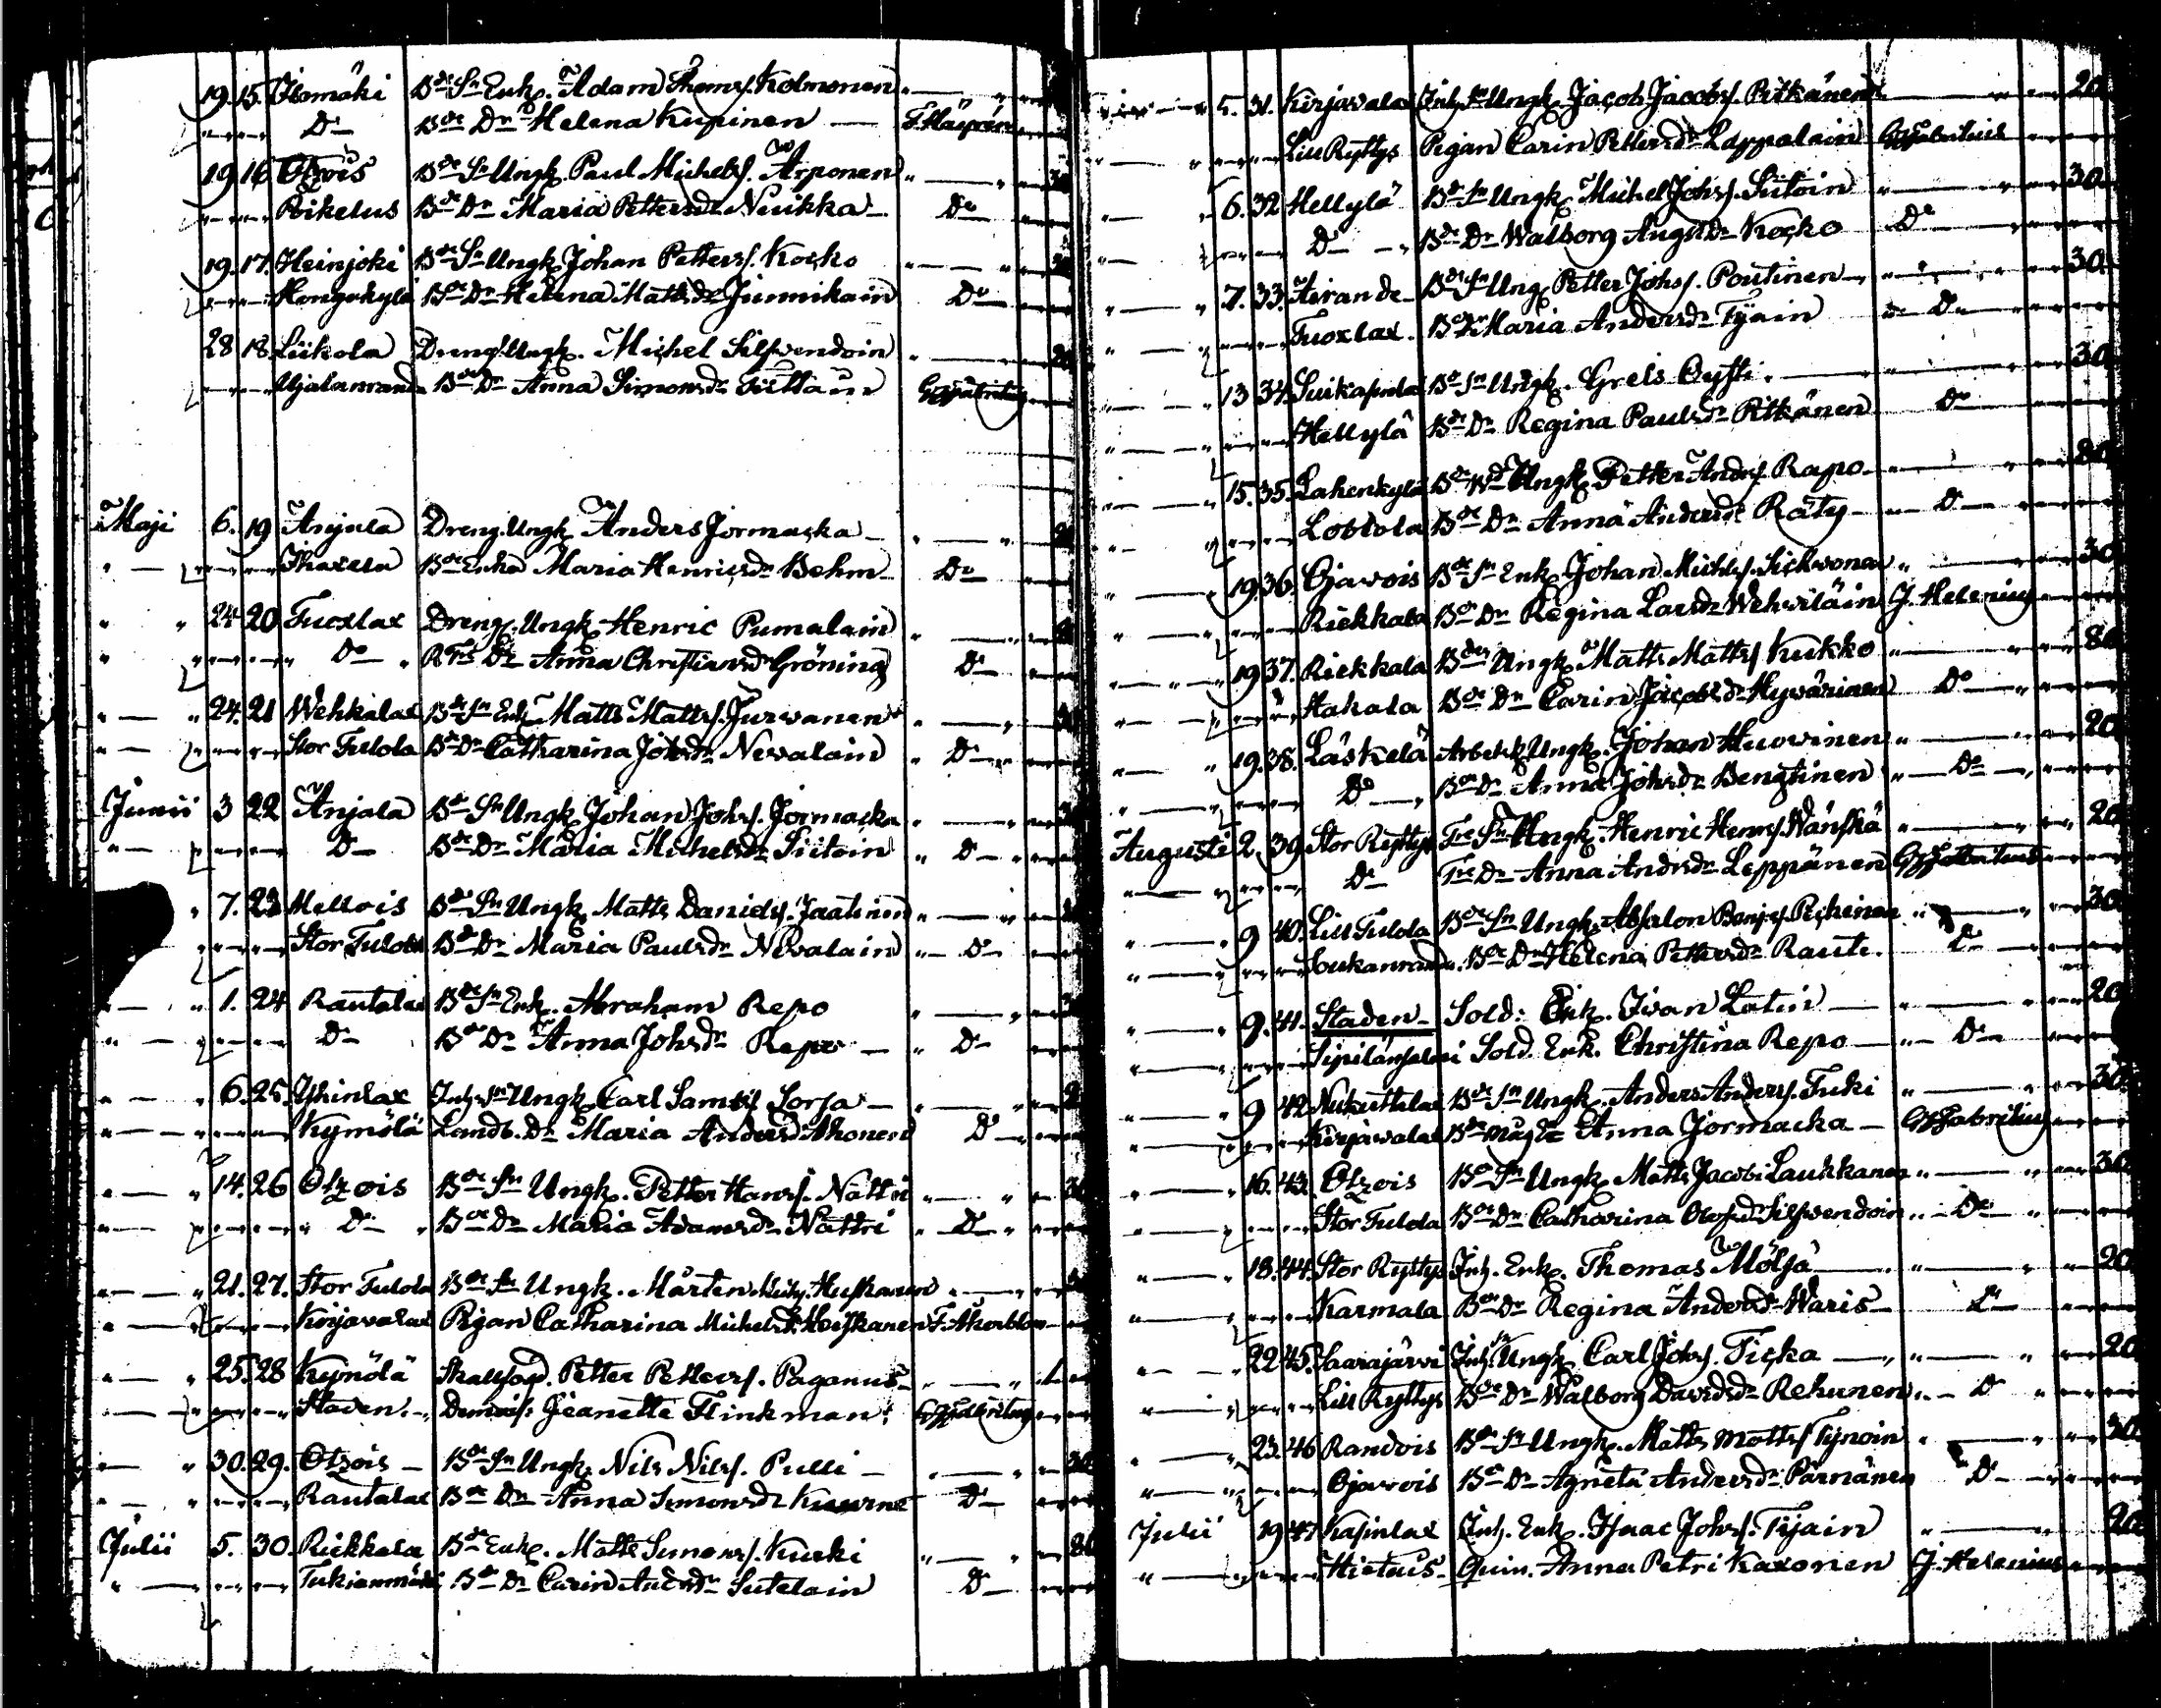 19. 15. Ilomäki Bde Sn Enk. Adam Thoms. Kolmonen
Do Bde Dr Helena Kupinen F. Häyrén
19 16 Otzois Bde Sn Ungk. Paul Michels. Arponen 30
Rikelus Bde Dr Maria Pettersdr Nuikka Do
19. 17. Heinjoki Bde Sn Ungk. Johan Petters. Kocko
Bde Dr Helena Mattsdr Junnikain Do
28 18. Liikola Dreng. Ungk. Michel Silfwendoin 20
Bde Dr Anna Simonsdr
Maji 6. 19 Anjala Dreng. Ungk. Anders Jormacka
Ihaxela Bde Enka Maria Henricsdr Behm Do
24 20 Tuoxlax Dreng. Ungk. Henric Pumalain
Do Dr Anna Christiansdr Gröning Do
24. 21 Wehkalax Bde Sn Enk. Matts Matts. Jurwanen
Stor Tulola Bde Dr Catharina Johsdr Newalain Do
Junii 3 22 Anjala Bde Sn Ungk. Johan Johs. Jormacka
Do Bde Dr Maria Michelsdr Siitoin Do
7. 23 Mellois Bde Sn Ungk. Matts Daniels. Jaatinen
Stor Tulola Bde Dr Maria Paulsdr Newalain Do
1. 24 Rautalax Bde Sn Enk. Abraham Repo
Do Bde Dr Anna Johsdr Repo Do
6. 25. Ihinlax Inh. Sn Ungk. Carl Saml. Sorsa
Kymölä Landb. Dr Maria Andersdr Ahonen Do
14. 26 Otzois Bde Sn Ungk. Petter Hans. Nättri
Do Bde Dr Maria Adamsdr Nättri Do
21. 27. Stor Tulola Bde Sn Ungk. Mårten Huskanen
Kirjavalax Pigan Catharina Michelsdr Heiskanen F. Aherblom
25. 28 Kymölä Petter Petters. Paganus
Staden. Demois. Jeanette Flinkman.
30. 29. Otzois Bde Sn Ungk. Nils Nils. Pulli 30
Rautalax Bde Dr Anna Simonsdr Do
Julii 5. 30. Riekkala Bde Enk. Matts Simons. Kurki
Bde Dr Carin Andrsdr Sutelain Do
5. 31. Kirjavalax Inh. Sn Ungk. Jacob Jacobs. Pitkänen 20
Lill Ryttys Pigan Carin Pettersdr Lappalain
6. 32 Hellylä Bde Sn Ungk. Michel Johs. Siitoin 30.
Do Bde Dr Walborg Augsdr Kocko Do
7. 33. Airande Bde Sn Ung. Petter Johs. Poutinen 30.
Tuoxlax. Bde Dr Maria Andersdr Tyain Do
13 34. Bde Sn Ungk. Grels Oysti 30.
Hellylä Bde Dr Regina Paulsdr Pitkänen Do
15. 35. Lahenkylä Ungk. Petter Andrs. Rapo
Bde Dr Anna Andersdr Räty Do
19. 36. Ojavois Bde Sn Enk. Johan Michls. Sickwonen 30
Riekkala Bde Dr Regina Larsdr Wehwiläin J. Helenius
19 37. Riekkala Ungk. Matts Matts. Kukko
Hakala Bde Dr Carin Jacobsdr Hyvärinen Do
19. 38. Läskelä Arbetsk. Ungk. Johan Huovinen 20
Do Bde Dr Anna Johsdr Bengtinen Do
Augusti 2. 39. Stor Ryttys Tre Sn Ungk. Henric Henrs. Wänskä 20
Do Tre Dr Anna Andrsdr Leppänen
9 40. Lill Tulola Bde Sn Ungk. Absalon Benjs. Pechinen 30
Bde Dr Helena Pettersdr Rauti. Do
9. 41. Staden Sold. Enk. Ivan Latin 20
Sold. Enk. Christina Repo Do
9 42 Nukuttalax Bde Sn Ungk. Anders Anders. Tuki 30
Kirjavalax Anna Jormacka
16. 43. Otzois Bde Sn Ungk. Matts Jacobs. Laukkanen 30
Stor Tulola Bde Dr Catharina Olofsdr Silfwendoin Do
18. 44. Stor Ryttys Inh. Enk. Thomas Mölsä 20
Karmala Bde Dr Regina Andersdr Waris Do
22 45. Saarajärvi Inh. Sn Ungk. Carl Johs. Ticka 20
Lill Ryttys Bde Dr Walborg Davidsdr Rehunen Do
23. 46 Randois Bde Sn Ungk. Matts Matts. Tynoin 30
Ojavois Bde Dr Agneta Andersdr Pärnänen Do
Julii 19 47 Kasinlax Inh. Enk. Isaac Johs. Tyain 20
Hietais Quin. Anna Petri Kaxonen J. Helenius